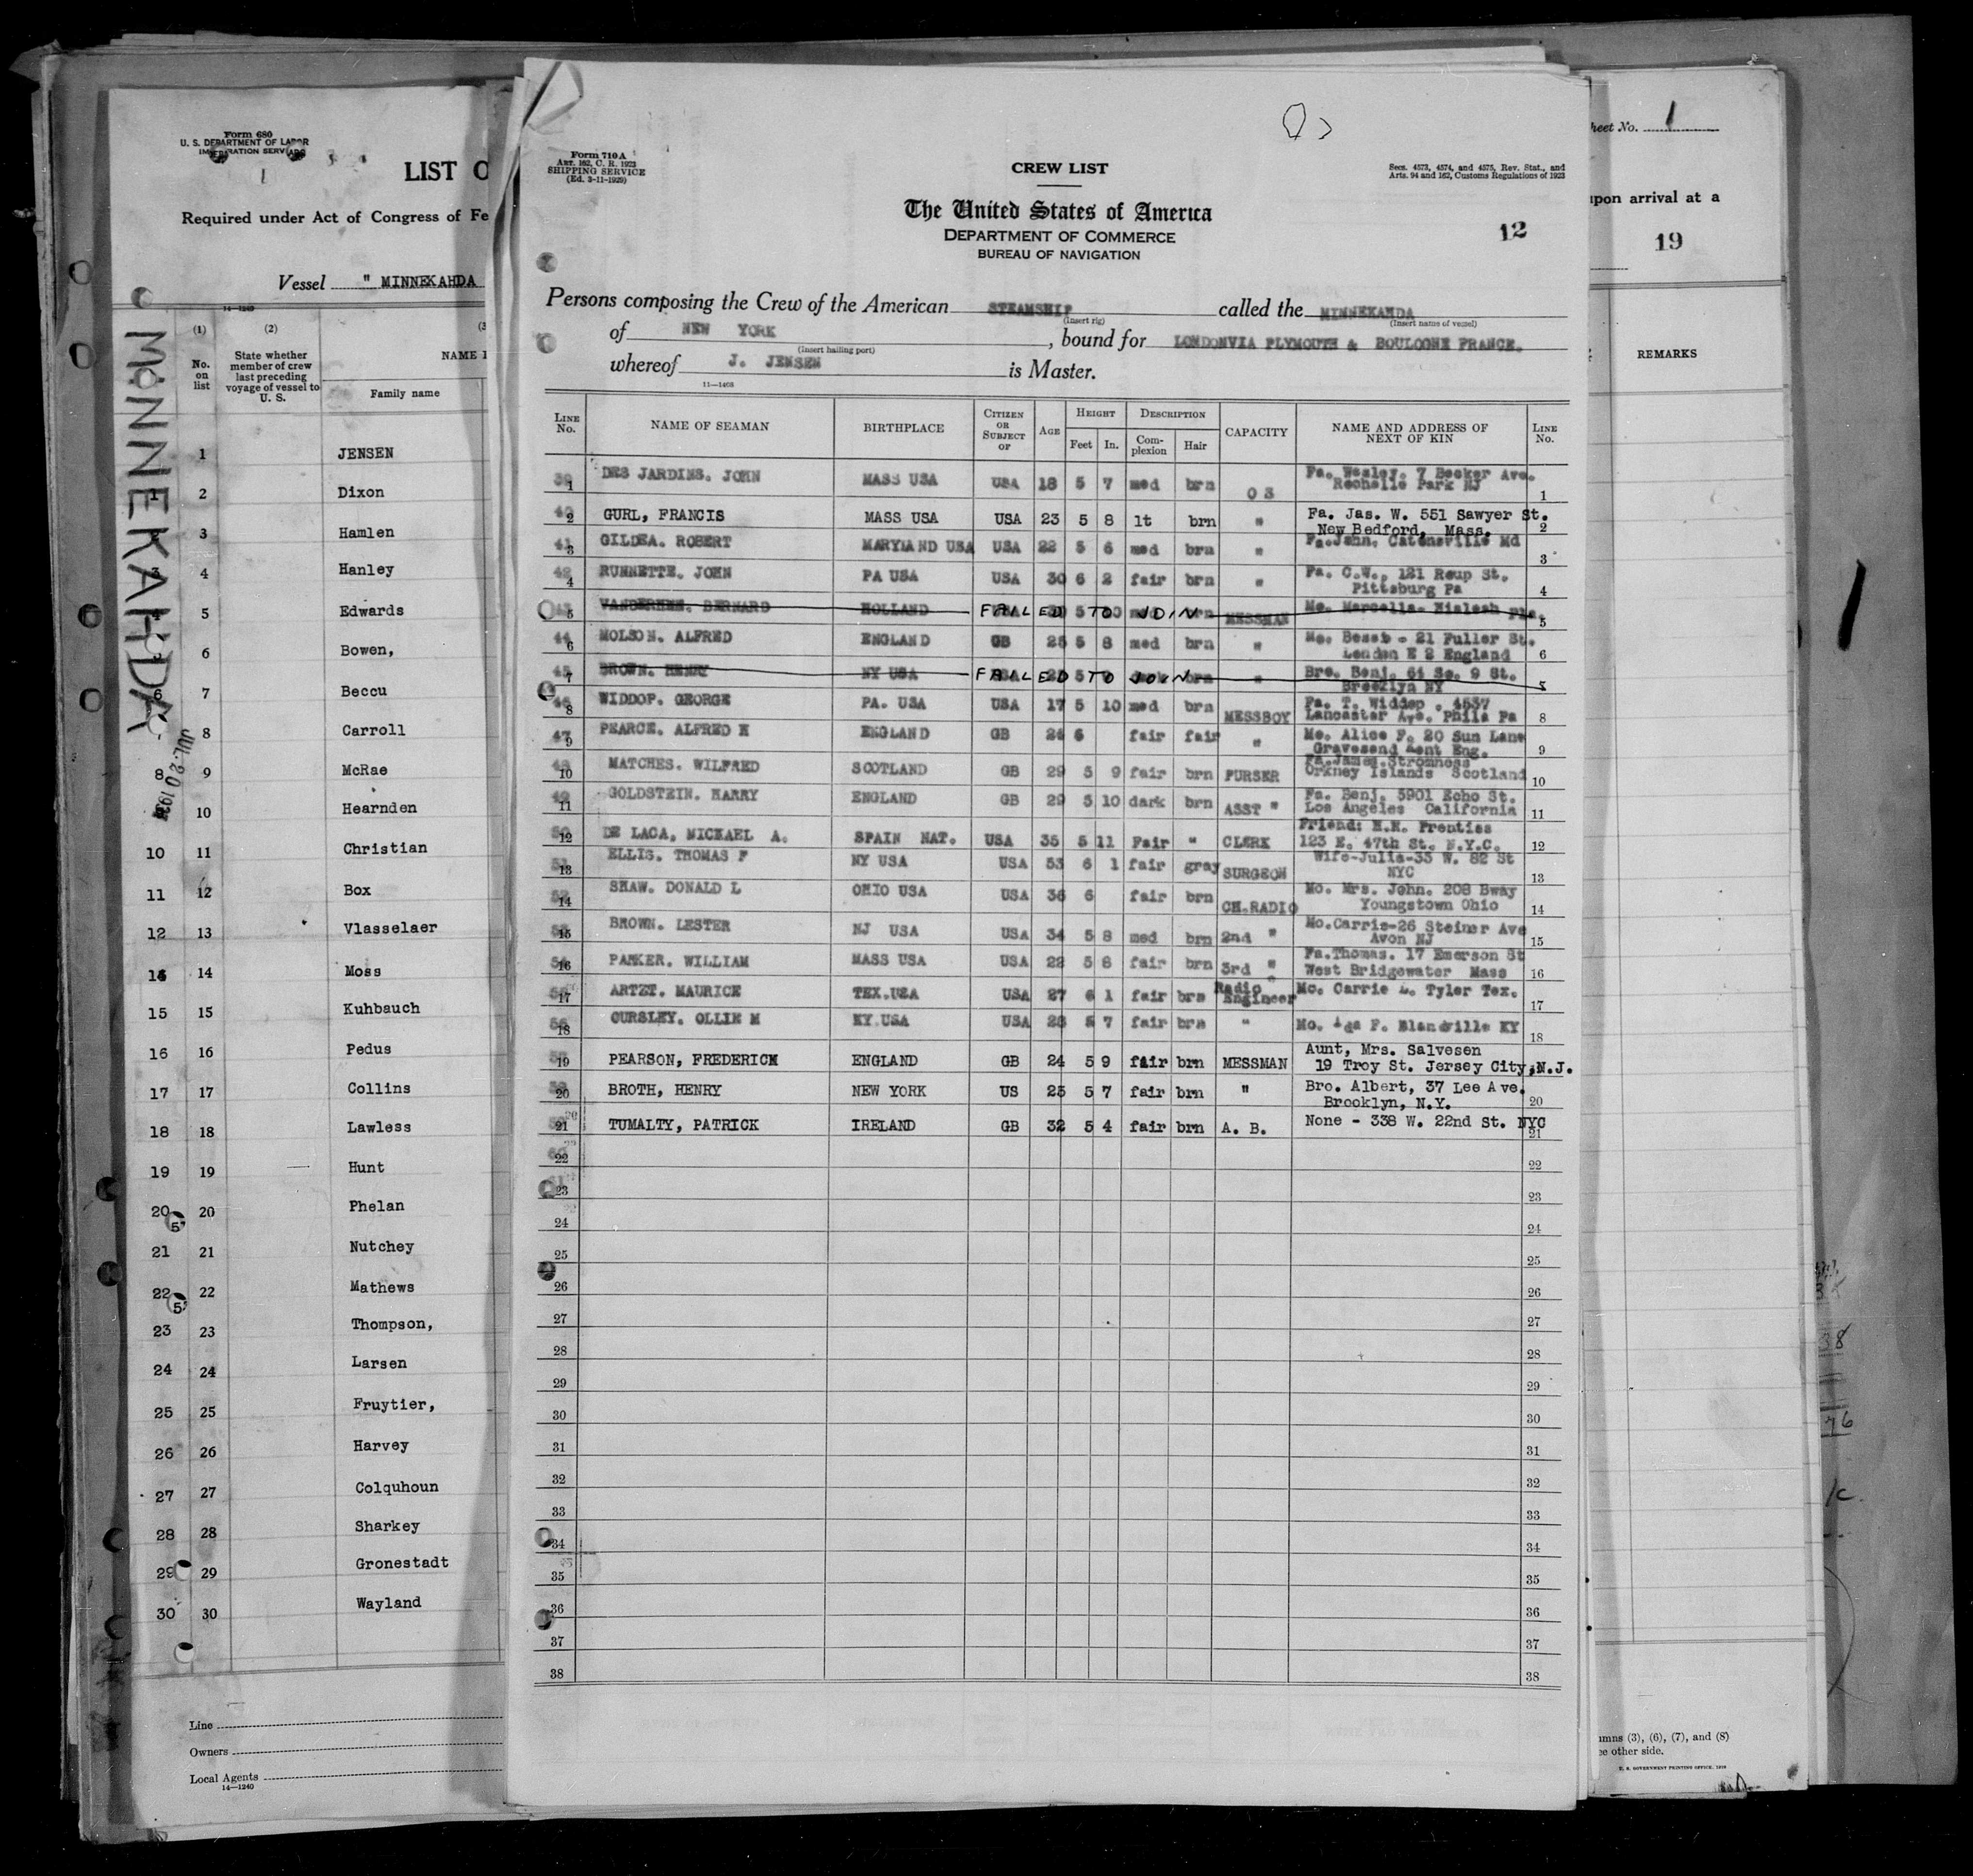 Form 680
U. S. DEPARTMENT OF LABOR
IMMIGRATION SERVICE
1
LIST O
Required under Act of Congress of Fe
Vessel " MINNEKAHDA
14—1240
(1) (2) (3
No. on list
State whether member of crew last preceding voyage of vessel to U. S.
NAME I
Family name
MINNEKAHDA
JUL 20 19
1 JENSEN
2 Dixon
3 Hamlen
4 Hanley
5 Edwards
6 Bowen,
7 Beccu
8 Carroll
8 9 McRae
10 Hearnden
10 11 Christian
11 12 Box
12 13 Vlasselaer
14 14 Moss
15 15 Kuhbauch
16 16 Pedus
17 17 Collins
18 18 Lawless
19 19 Hunt
20 20 Phelan
21 21 Nutchey
22 22 Mathews
23 23 Thompson,
24 24 Larsen
25 25 Fruytier,
26 26 Harvey
27 27 Colquhoun
28 28 Sharkey
29 29 Gronestadt
30 30 Wayland
Line
Owners
Local Agents
14—1240
Form 710 A
ART. 162, C. R. 1923
SHIPPING SERVICE
(Ed. 3-11-1929)
CREW LIST
Secs. 4573, 4574, and 4575, Rev. Stat., and
Arts. 94 and 162, Customs Regulations of 1923
The United States of America
DEPARTMENT OF COMMERCE
BUREAU OF NAVIGATION
12
Persons composing the Crew of the American STEAMSHIP called the MINNEKAHDA
(Insert rig) (Insert name of vessel)
of NEW YORK, bound for LONDONVIA PLYMOUTH & BOULOGNE FRANCE.
(Insert hailing port)
whereof J. JENSEN is Master.
11—1408
LINE No. NAME OF SEAMAN BIRTHPLACE CITIZEN OR SUBJECT OF AGE HEIGHT Feet In. DESCRIPTION Complexion Hair CAPACITY NAME AND ADDRESS OF NEXT OF KIN LINE No.
1 DES JARDINS. JOHN MASS USA USA 18 5 7 med brn O S Fa. Wesley. 7 Becker Ave. 1
Rochelle Park NJ
2 GURL, FRANCIS MASS USA USA 23 5 8 lt brn " Fa. Jas. W. 551 Sawyer St. 2
New Bedford, Mass.
3 GILDEA. ROBERT MARYLAND USA USA 22 5 6 med brn " Fa.John. Catonsville Md 3
4 RUNNETTE. JOHN PA USA USA 30 6 2 fair brn " Fa. C.W., 121 Roup St. 4
Pittsburg Pa
5 BERNARD HOLLAND FAILED TO JOIN MESSMAN 5
6 MOLSON. ALFRED ENGLAND GB 25 5 8 med brn " 21 Fuller St. 6
London E 2 England
7 BROWN. HENRY NY USA FAILED TO JOIN brn " Bro. Benj. 61 So. 9 St. 7
Brooklyn NY
8 WIDDOP. GEORGE PA. USA USA 17 5 10 med brn MESSBOY Fa. T. Widdop . 4537 8
Lancaster Ave. Phila Pa
9 PEARCE. ALFRED E ENGLAND GB 24 6 fair fair " Mo. Alice F. 20 Sun Lane 9
Gravesend Kent Eng.
10 MATCHES. WILFRED SCOTLAND GB 29 5 9 fair brn PURSER Fa.James.Stromness 10
Orkney Islands Scotland
11 GOLDSTEIN. HARRY ENGLAND GB 29 5 10 dark brn ASST " Fa. Benj. 5901 Echo St. 11
Los Angeles California
12 DE LACA, MICKAEL A. SPAIN NAT. USA 35 5 11 Fair " CLERK Friend: H.H. Prentiss 12
123 E. 47th St. N.Y.C.
13 ELLIS. THOMAS F NY USA USA 53 6 1 fair gray SURGEON Wife-Julia-33 W. 82 St 13
NYC
14 SHAW. DONALD L OHIO USA USA 36 6 fair brn CH.RADIO Mo. Mrs. John. 208 Bway 14
Youngstown Ohio
15 BROWN. LESTER NJ USA USA 34 5 8 med brn 2nd " Mo.Carrie-26 Steiner Ave 15
Avon NJ
16 PARKER. WILLIAM MASS USA USA 22 5 8 fair brn 3rd " Fa.Thomas. 17 Emerson St 16
West Bridgewater Mass
17 ARTZT. MAURICE TEX.USA USA 27 6 1 fair brn Radio Engineer Mo. Carrie L. Tyler Tex. 17
18 CURSLEY. OLLIE M KY.USA USA 28 5 7 fair brn " Mo. Ida F. Blandville KY 18
19 PEARSON, FREDERICK ENGLAND GB 24 5 9 fair brn MESSMAN Aunt, Mrs. Salvesen
19 Troy St. Jersey City,N.J.
20 BROTH, HENRY NEW YORK US 25 5 7 fair brn " Bro. Albert, 37 Lee Ave. 20
Brooklyn, N.Y.
21 TUMALTY, PATRICK IRELAND GB 32 5 4 fair brn A. B. None - 338 W. 22nd St. NYC 21
22 22
23 23
24 24
25 25
26 26
27 27
28 28
29 29
30 30
31 31
32 32
33 33
34 34
35 35
36 36
37 37
38 38
heet No. 1
upon arrival at a
19
REMARKS
umns (3), (6), (7), and (8)
ee other side.
U. S. GOVERNMENT PRINTING OFFICE